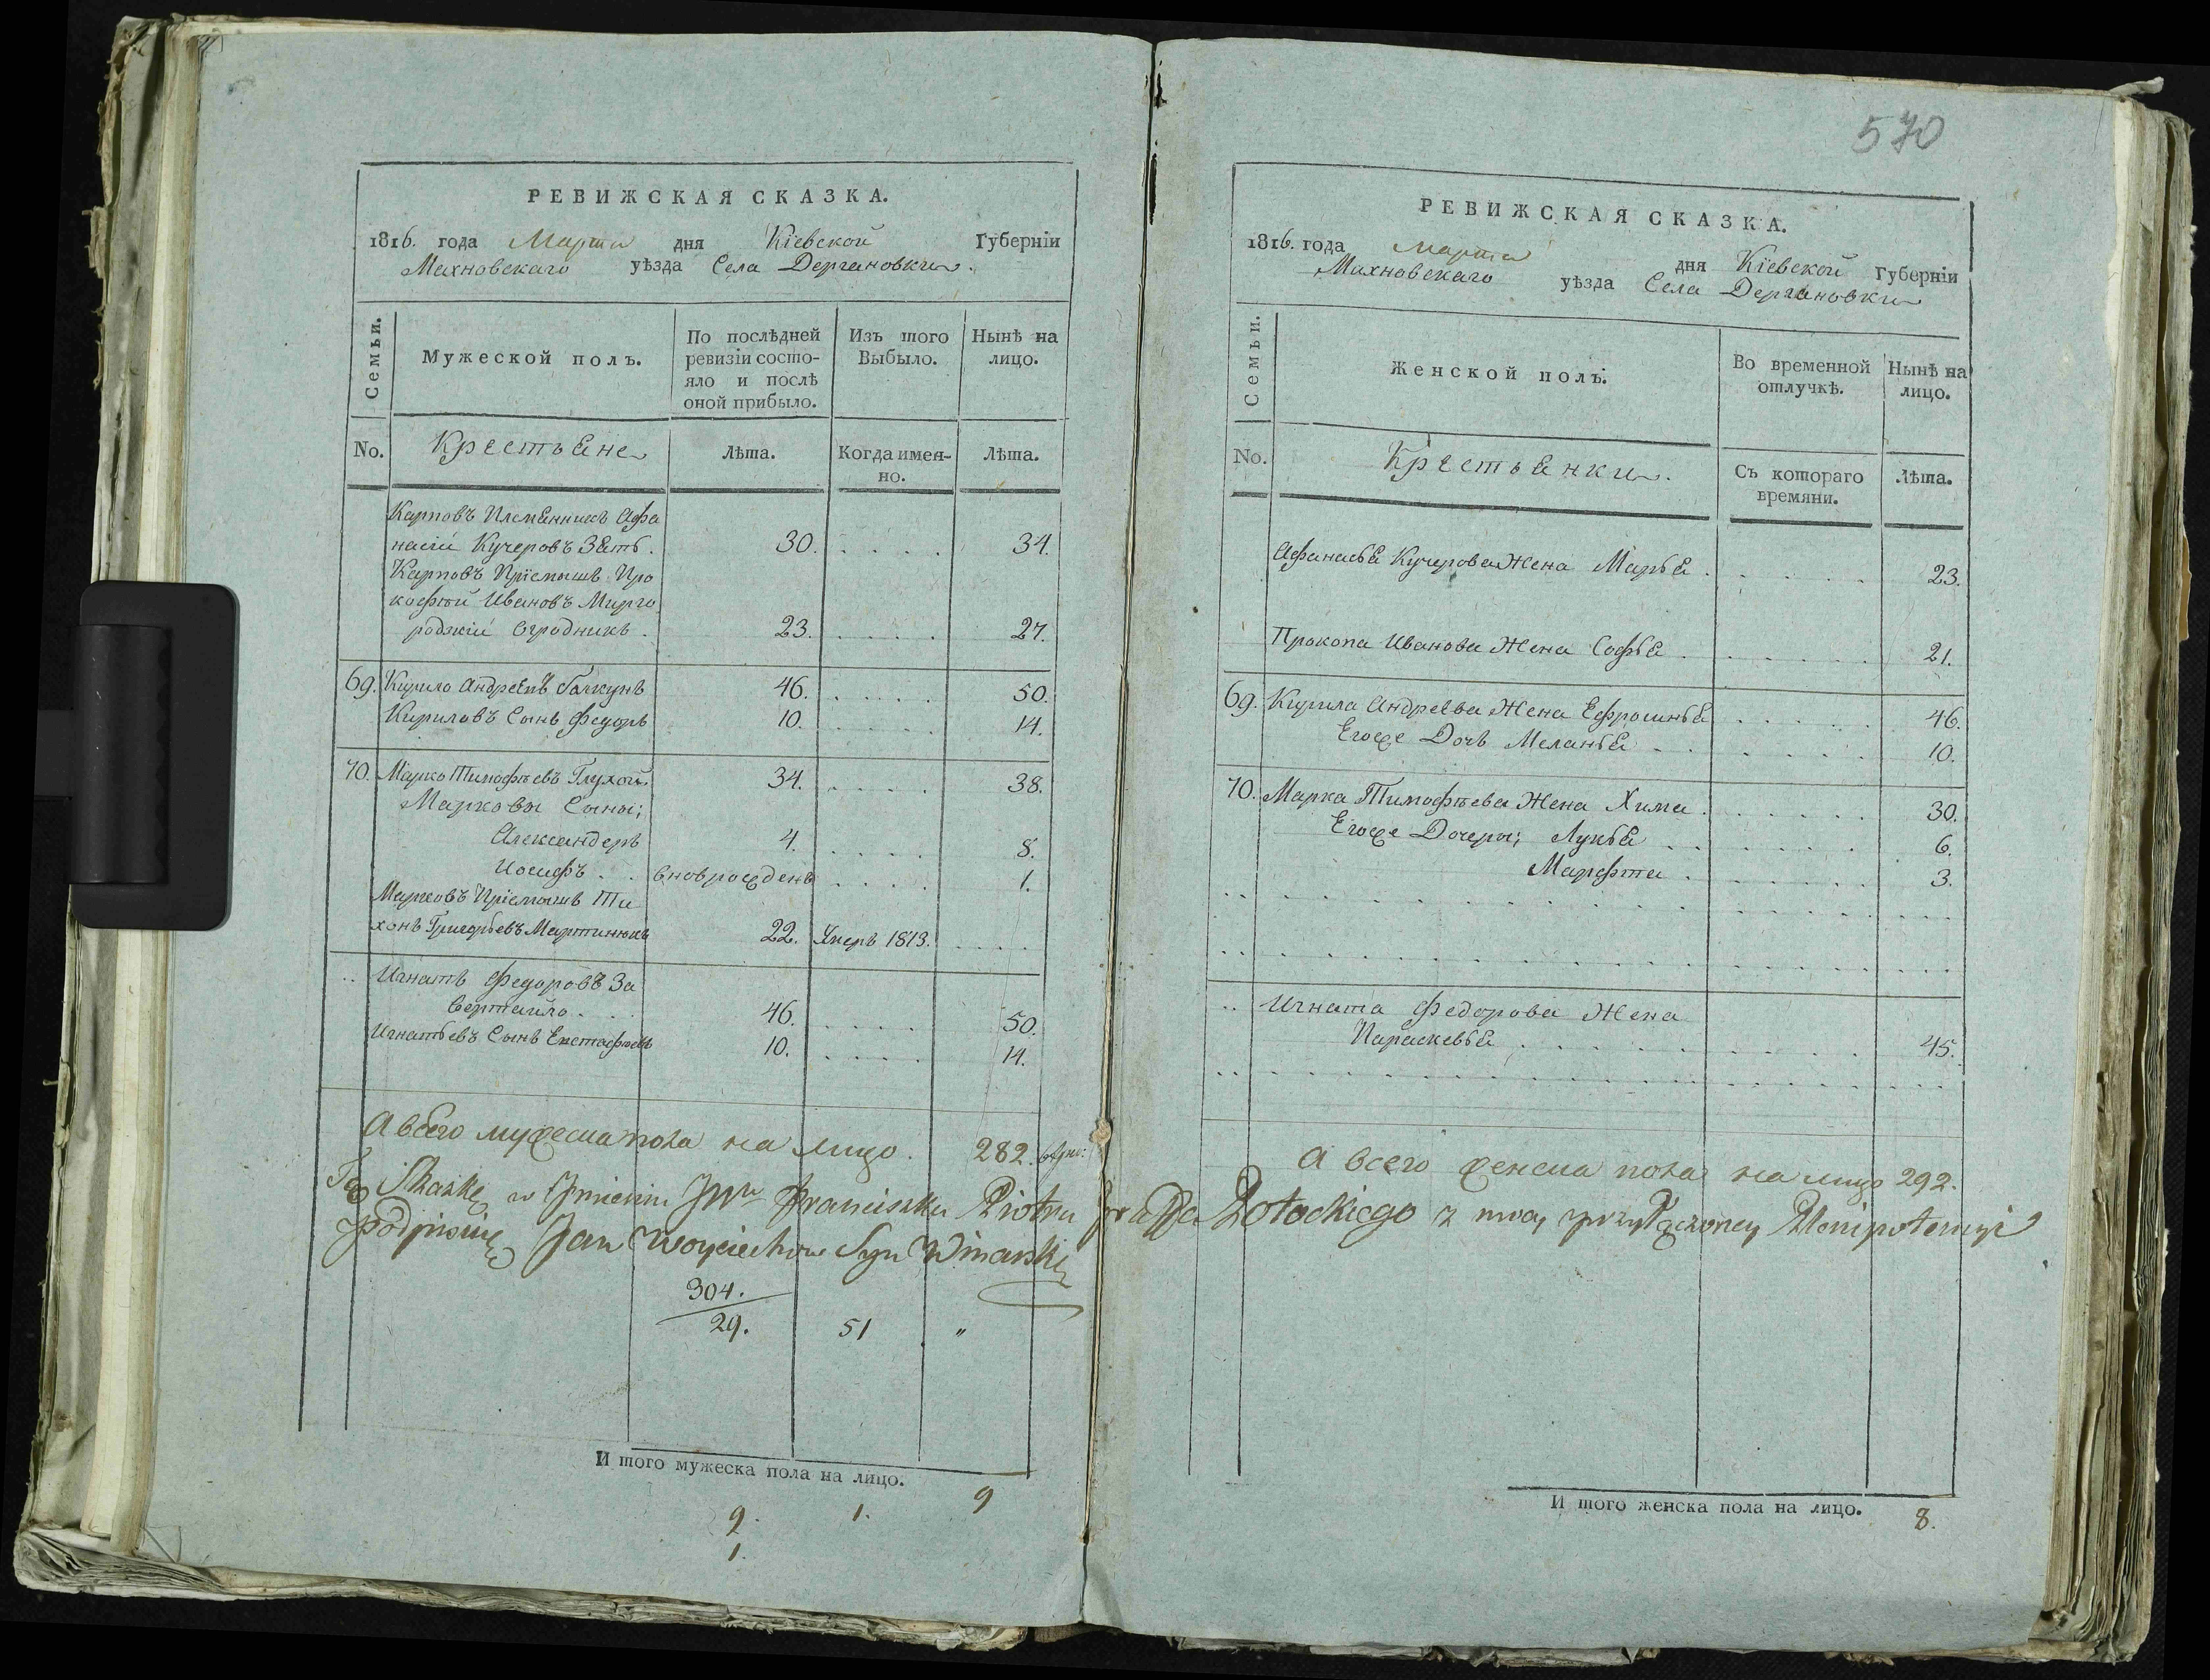 РЕВИЖСКАЯ СКАЗКА.
1816. года Марта дня Кіевской Губерніи
Махновскаго уѣзда Села Дергановки.
Семьи.
Мужеской полъ.
По послѣдней ревизіи состо-
яло и послѣ оной прибыло.
Изъ того Выбыло.
Нынѣ на лицо.
No.
Крестьяне
Лѣта.
Когда имен-
но.
Лѣта.
Карповъ Племянникъ Афа
насій Кучеровъ Зять. 30. . . . . 34.
Карповъ Пріемышъ Про
кофтій Ивановъ Мирго
родзкій Огродникъ. 23. . . . . 27.
69. Кирило Андреевъ 46. . . . . 50.
Кириловъ Сынъ Федоръ 10. . . . . 14.
70. Марко Тимофѣевъ Глухой 34. . . . . 38.
Марковы Сыны;
Александеръ 4. . . . . 8.
Иосифъ . . вновърожденъ . . . . 1.
Марковъ Пріемышъ Ти
хонъ Григорьевъ Мартинюкъ 22. Умеръ 1813. . . . .
.. Игнатъ Федоровъ За
вертайло . . . 46. . . . . 50.
Игнатьевъ Сынъ Евстафѣй 10. . . . . 14.
А всего мужеска пола на лицо. 282.
Tę Skazkę w Jmieniu JW Franciszka Piotra
podpisuię Jan Woyciechow Syn Winarski
304.
29. 51 "
И того мужеска пола на лицо.
9. 1. 9
1.
570
РЕВИЖСКАЯ СКАЗКА.
1816. года Марта дня Кіевской Губерніи
Махновскаго уѣзда Села Дергановки
Семьи.
Женской полъ.
Во временной отлучкѣ.
Нынѣ на лицо.
No.
Крестьянки.
Съ котораго времяни.
Лѣта.
Афанасья Кучерова Жена Марья . . . . . 23.
Прокопа Иванова Жена Софья . . . . . 21.
69. Кирила Андреева Жена Ефросинья . . . . . 46.
Егоже Дочь Меланья . . . . . 10.
70. Марка Тимофѣева Жена Хима . . . . . 30.
Егоже Дочери; Лукья . . . . . 6.
Марфта . . . . . 3.
.. Игната Федорова Жена
Параскевья . . . . . 45.
А всего женска пола на лицо 292.
Potockiego z mocy przyłączoney Plenipotencyi
И того женска пола на лицо. 8.